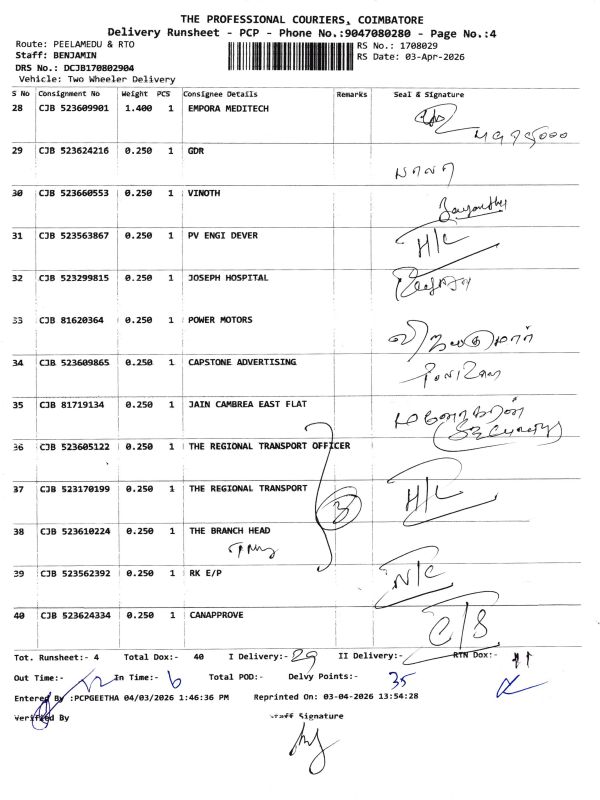 THE PROFESSIONAL COURIERS, COIMBATORE
Delivery Runsheet - PCP - Phone No.:9047080280 - Page No.:4
Route: PEELAMEDU & RTO
RS No.: 1708029
Staff: BENJAMIN
RS Date: 03-Apr-2026
DRS No.: DCJB170802904
Vehicle: Two Wheeler Delivery
S No Consignment No Weight PCS Consignee Details Remarks Seal & Signature
28 CJB 523609901 1.400 1 EMPORA MEDITECH
29 CJB 523624216 0.250 1 GDR
30 CJB 523660553 0.250 1 VINOTH
31 CJB 523563867 0.250 1 PV ENGI DEVER H/C
32 CJB 523299815 0.250 1 JOSEPH HOSPITAL
33 CJB 81620364 0.250 1 POWER MOTORS
34 CJB 523609865 0.250 1 CAPSTONE ADVERTISING
35 CJB 81719134 0.250 1 JAIN CAMBREA EAST FLAT
மனோகரன்
36 CJB 523605122 0.250 1 THE REGIONAL TRANSPORT OFFICER
37 CJB 523170199 0.250 1 THE REGIONAL TRANSPORT 3 H/C
38 CJB 523610224 0.250 1 THE BRANCH HEAD
39 CJB 523562392 0.250 1 RK E/P N/C
40 CJB 523624334 0.250 1 CANAPPROVE C/S
Tot. Runsheet:- 4 Total Dox:- 40 I Delivery:- 29 II Delivery:- RTN Dox:-
Out Time:- 12 In Time:- 6 Total POD:- Delvy Points:- 35
Entered By :PCPGEETHA 04/03/2026 1:46:36 PM Reprinted On: 03-04-2026 13:54:28
Verified By Staff Signature